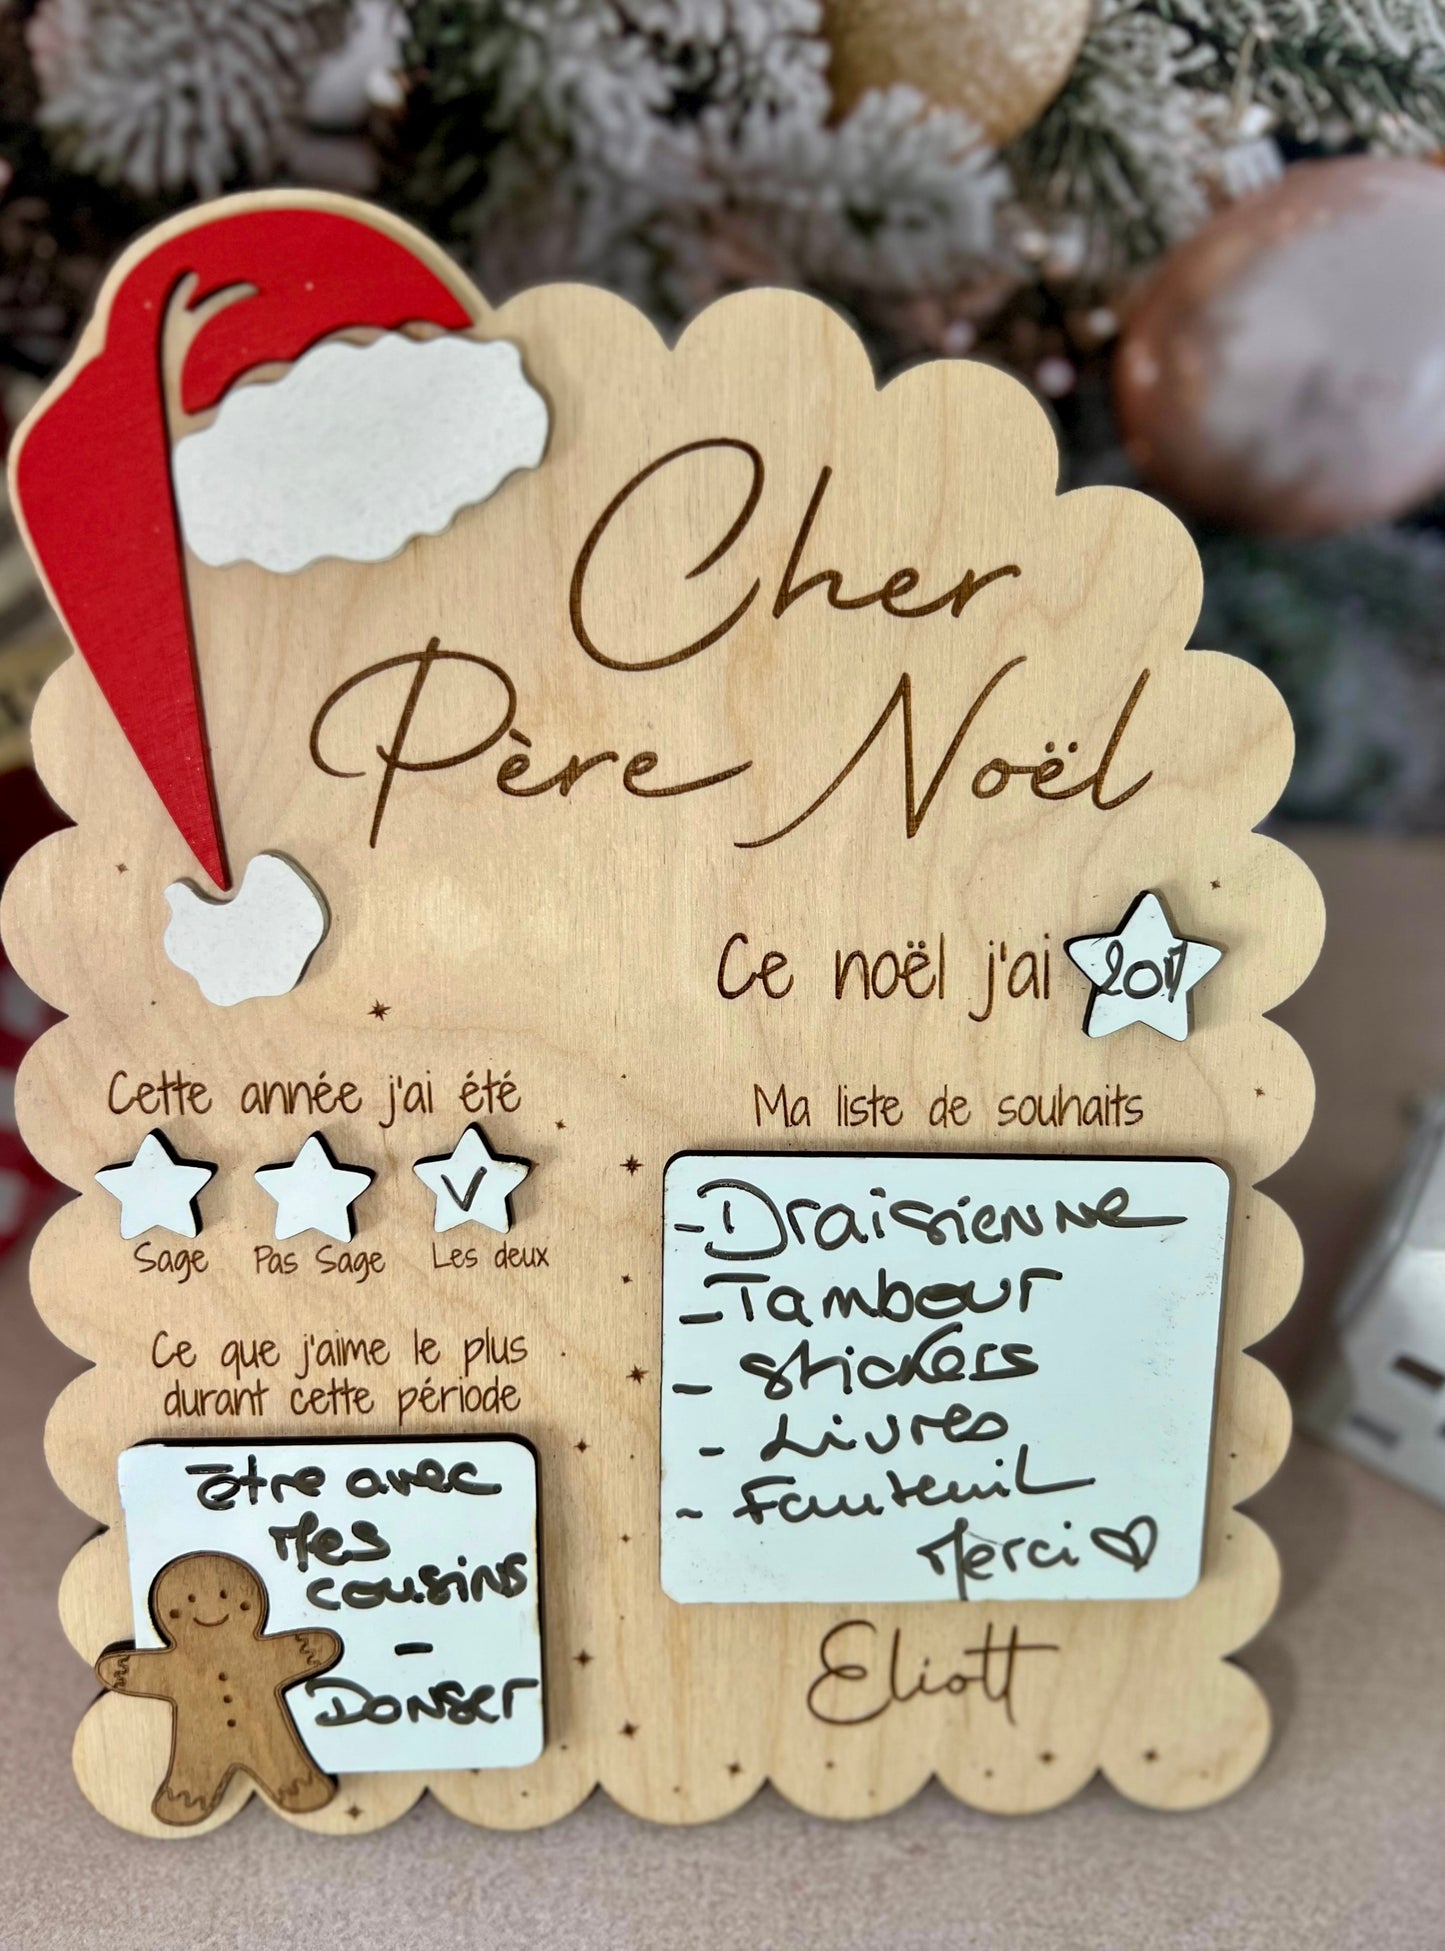 Cher
Père Noël
Ce noël j'ai
Cette année j'ai été
V
Sage
Pas Sage
Les deux
Ce que j'aime le plus
durant cette période
être avec
Mes
cousins
-
Danser
Ma liste de souhaits
- Draisienne
- Tambour
- stickers
- Livres
- Fauteuil
Merci ♡
Eliott